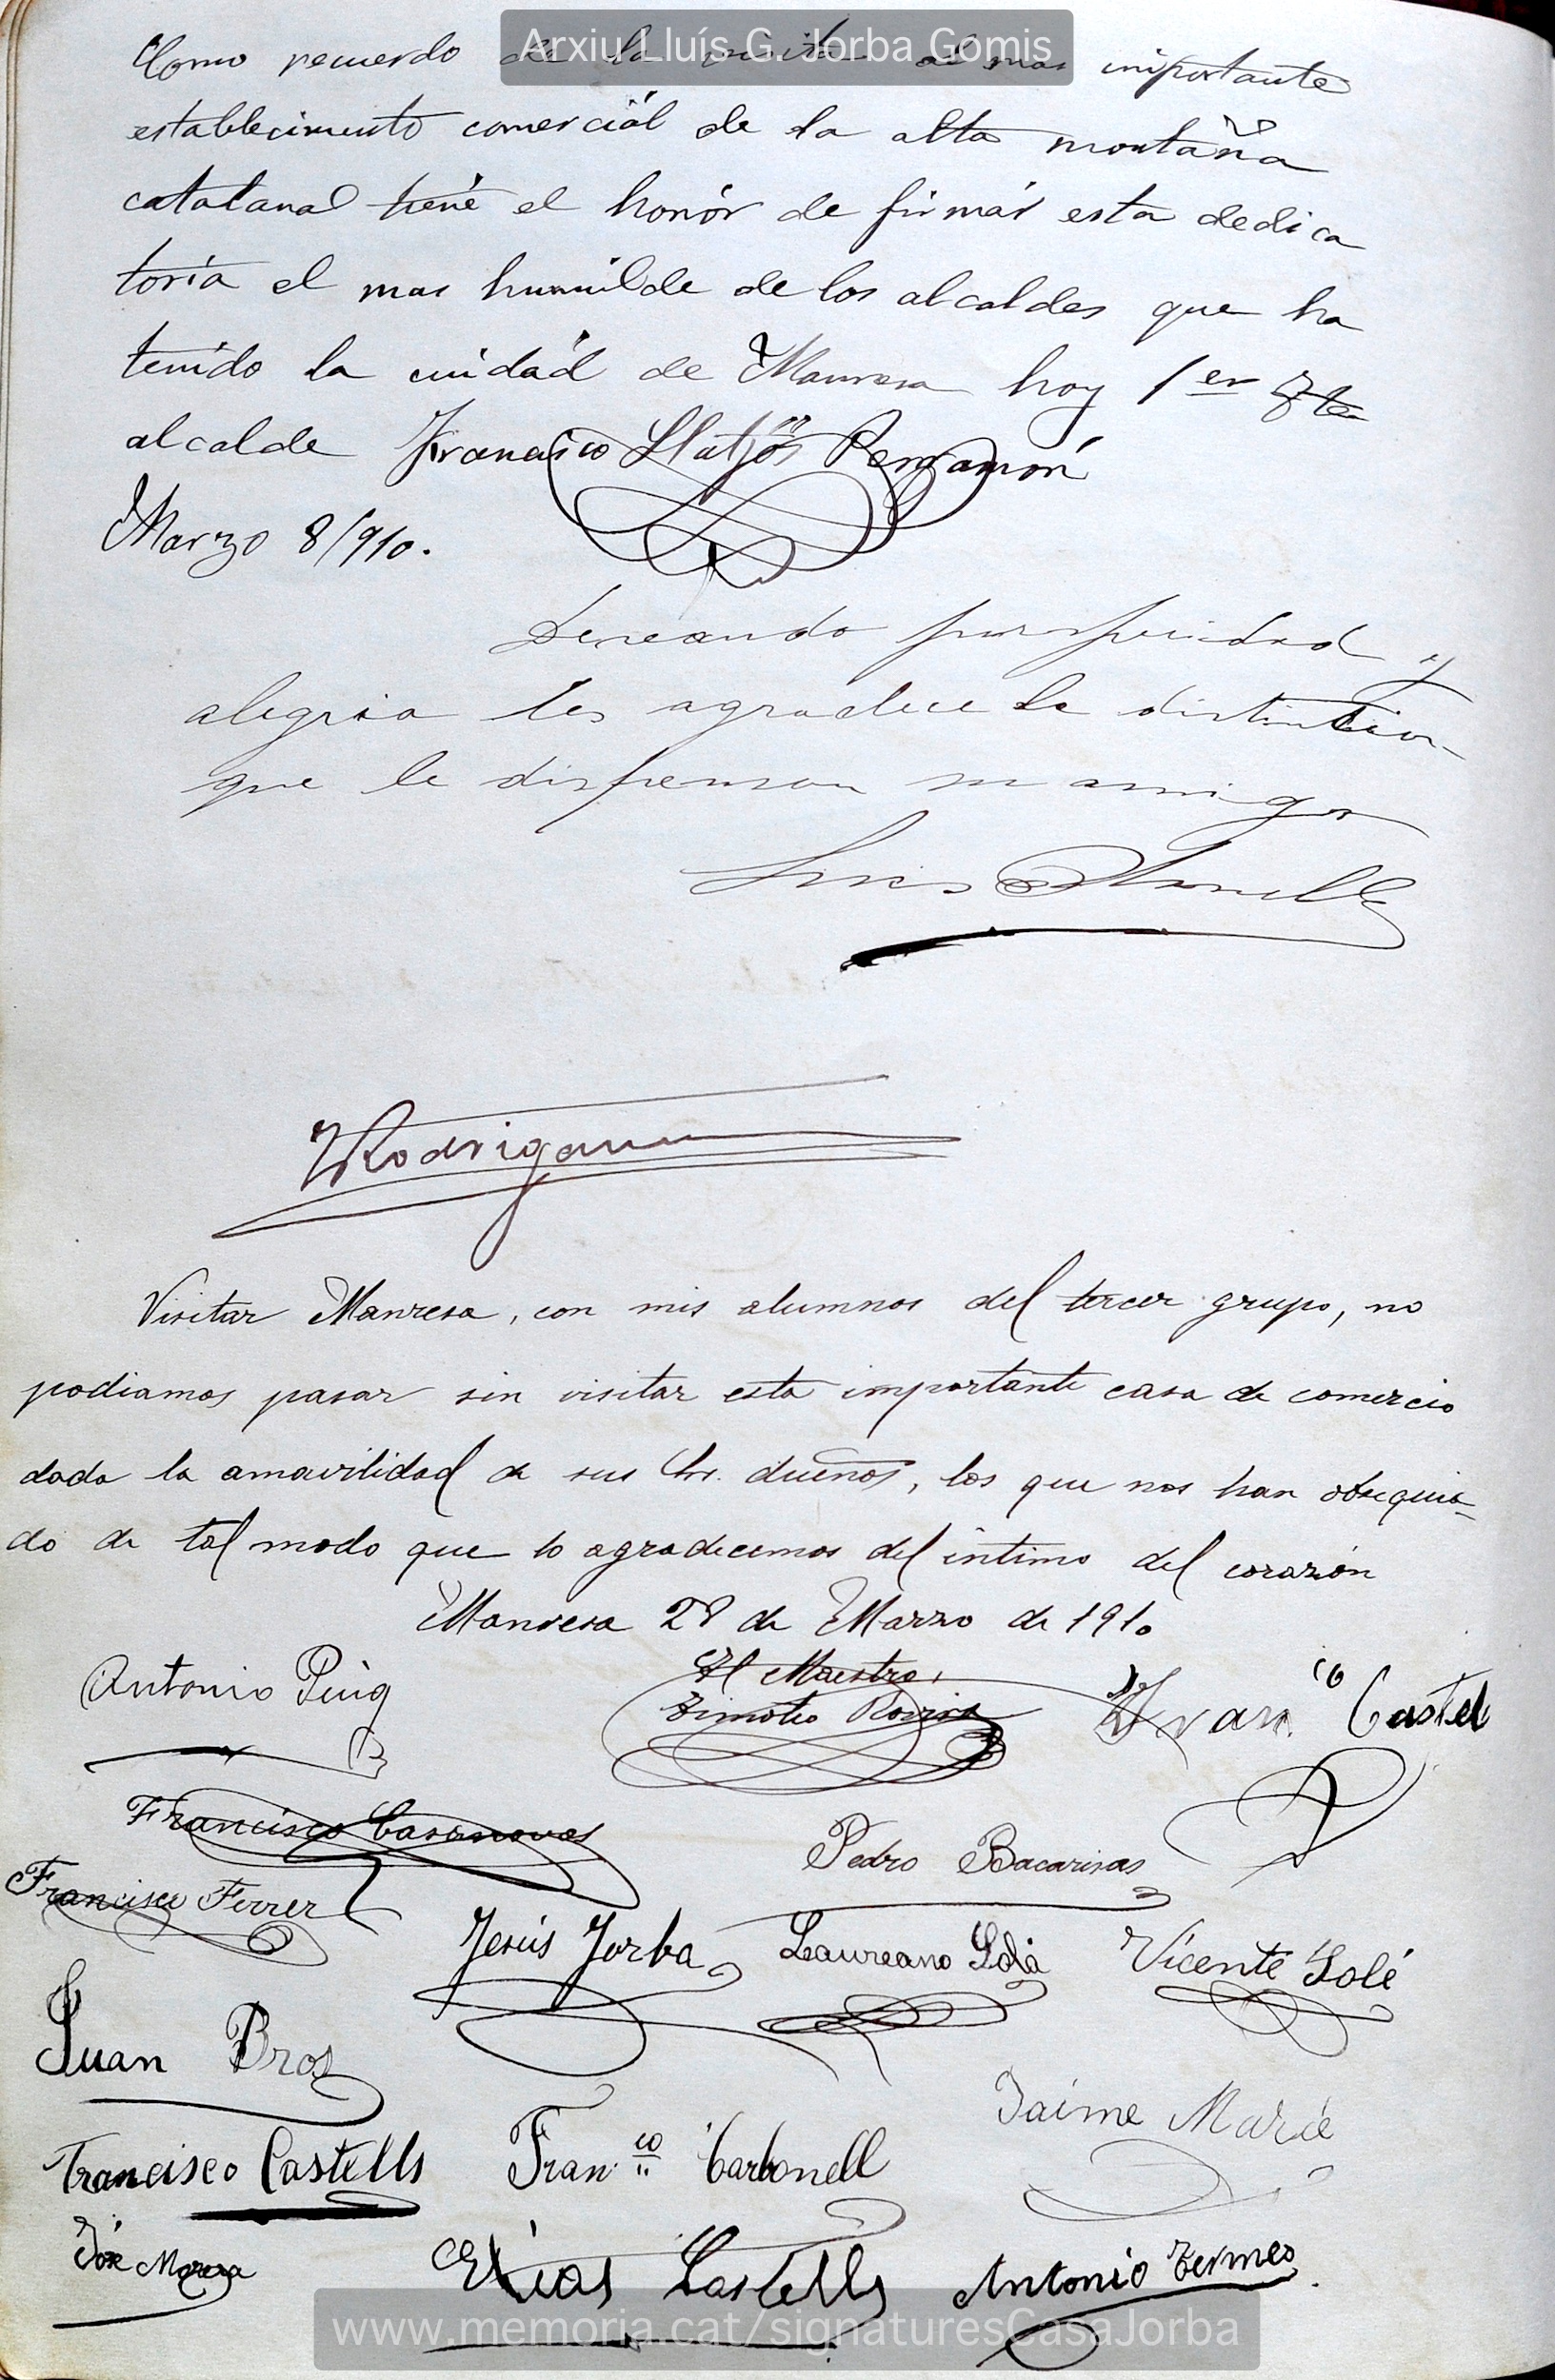 Arxiu Lluís G. Jorba Gomis
Como recuerdo de la visita al mas importante
establecimento comerciál de la alta montaña
catalana tiené el honór de firmár esta dedica
toria el mas humilde de los alcaldes que ha
tenido la ciudád de Manresa hoy 1er Tte
alcalde Francisco Llatjós
Marzo 8/910.
Deseando prosperidad y
alegria les agradece la distincion
que le dispensan su amigo
Luis
Visitar Manresa, con mis alumnos del tercer grupo, no
podiamos pasar sin visitar esta importante casa de comercio
dada la amavilidad de sus Srs. dueños, los que nos han obsequia-
do de tal modo que lo agradecemos del intimo del corazón
Manresa 28 de Marzo de 1910
Antonio Puig
El Maestro,
Timoteo Rovira
Fran.co Castell
Francisco Casanovas
Pedro Bacarisas
Francisco Ferrer
Jesús Jorba
Laureano Solá
Vicente Solé
Juan Bros
Jaime
Francisco Castells
Fran.co Carbonell
José
Elias Castells
Antonio Termes
www.memoria.cat/signaturesCasaJorba